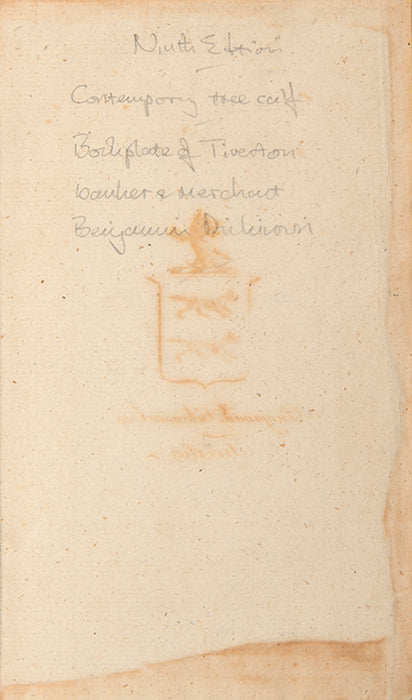 Ninth Edition
Contemporary tree calf
Bookplate of Tiverton
banker & merchant
Benjamin Dickinson
Tiverton